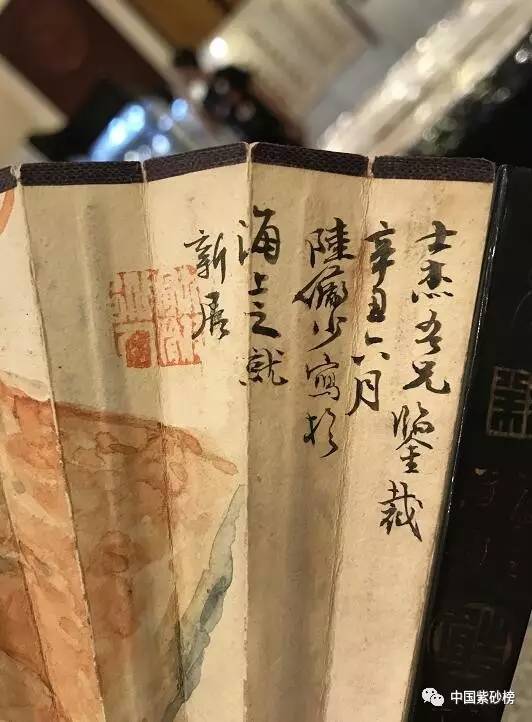 士杰吾兄鑒裁
辛丑六月
陸儼少寫於
海上之就
新居
中国紫砂榜